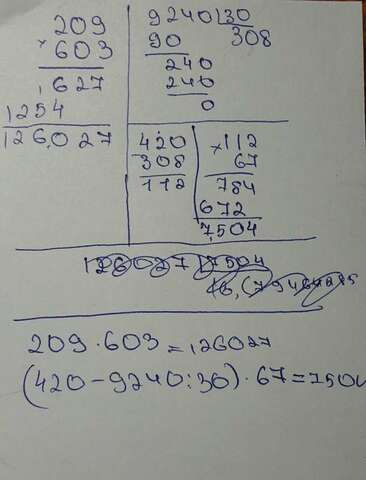 209
× 603
627
1254
126027
9240 | 30
90
308
240
240
0
420
308
112
× 112
67
784
672
7504
126027 | 7504
209 · 603 = 126027
(420 - 9240 : 30) · 67 = 7504